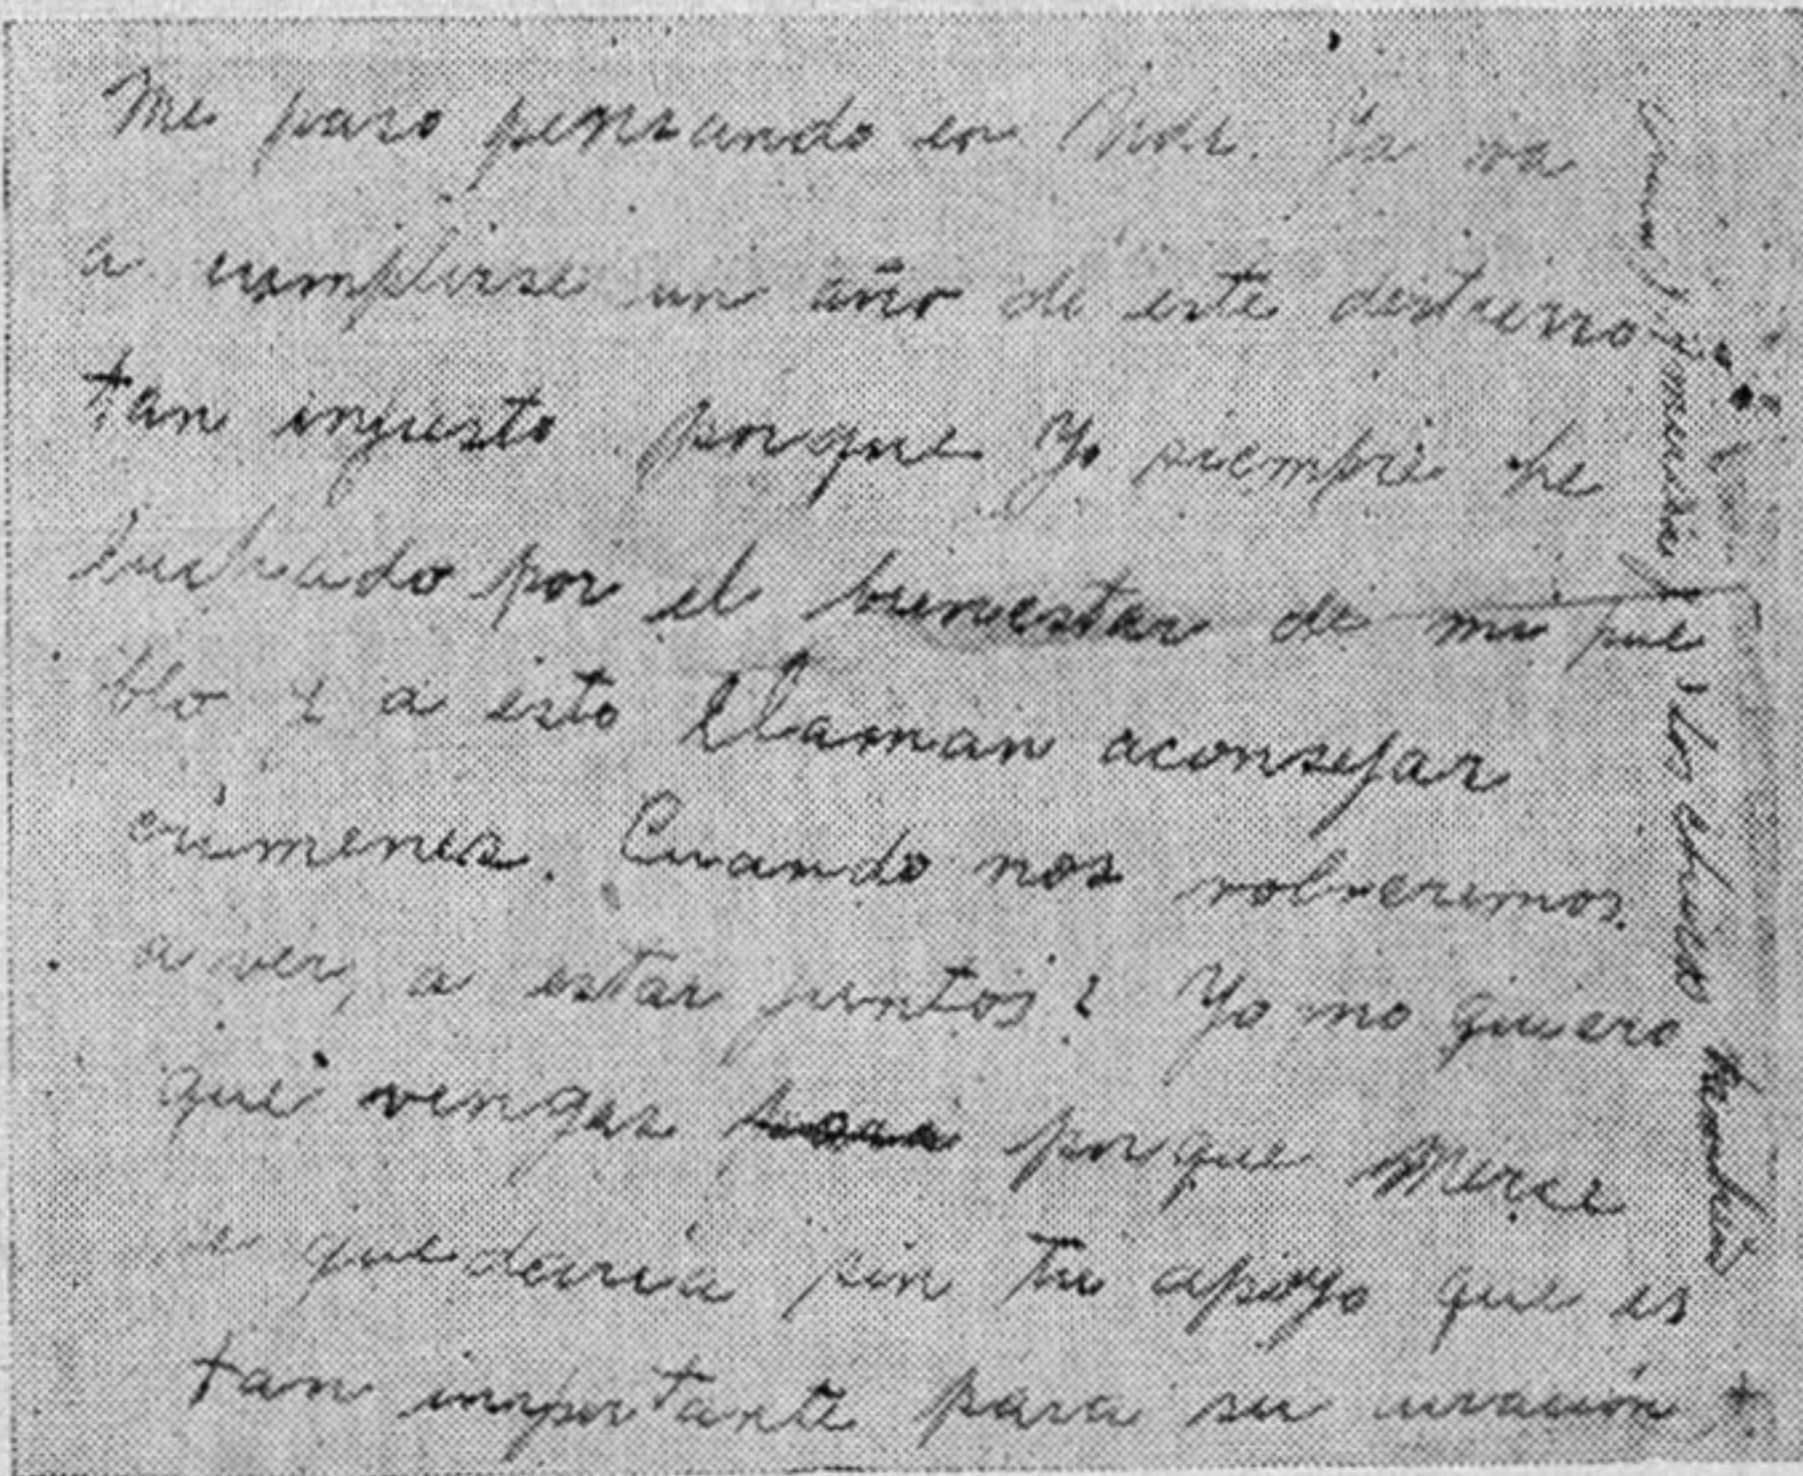 Me paso pensando en Uds. Ya va
a cumplirse un año de este destierro
tan injusto porque yo siempre he
luchado por el bienestar de mi pue
blo y a esto llaman aconsejar
crímenes. Cuando nos volveremos
a ver, a estar juntos? Yo no quiero
que vengas porque Merce
se quedaría sin tu apoyo que es
tan importante para su curación